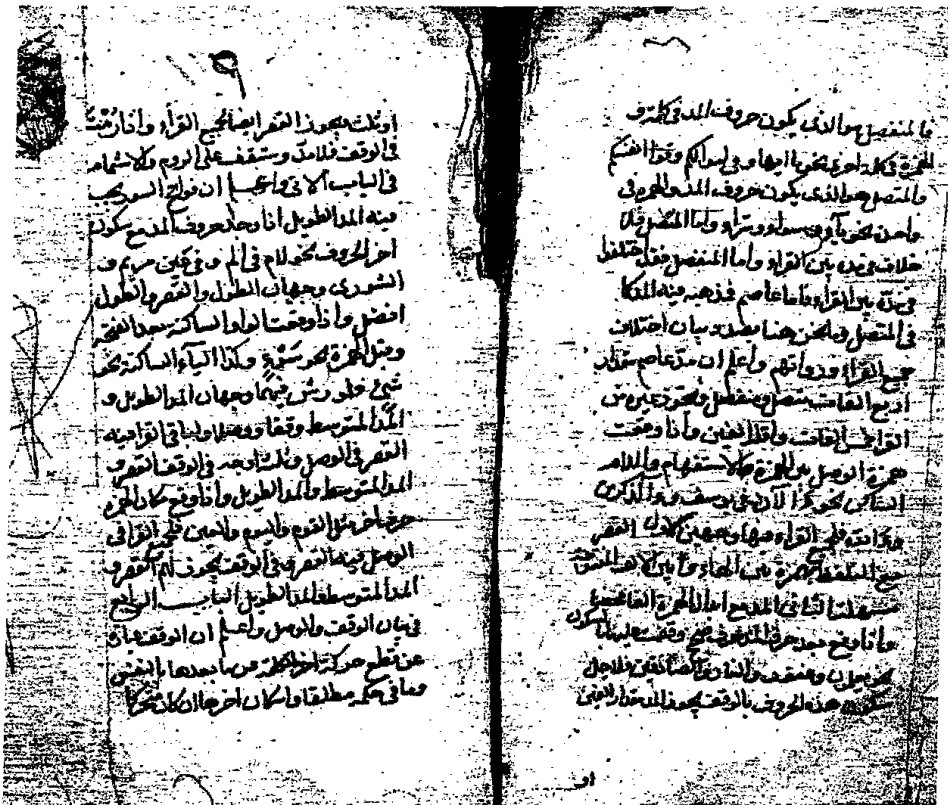 فالمنفصل هو الذي يكون حروف المد في كلمة و
الهمزة في كلمة اخرى نحو يا ايها وفي اموالكم وقوا انفسكم
والمتصل هو الذي يكون حروف المد والهمزة في
واحدة نحو سواء واما المتصل فلا
خلاف في مده بين القراء واما المنفصل فقد اختلفوا
في مده بين القراء واما عاصم فمذهبه فيه المد كما
في المتصل ونحن هنا بصدد بيان اختلاف
جميع القراء ورواتهم واعلم ان مد عاصم مقدار
اربع الفات متصل ومنفصل
القراء خمس الفات واقله الفين واذا وقعت
همزة الوصل بين همزة الاستفهام واللام
الساكن نحو الآن في يونس والذكرين
فلجميع القراء فيها وجهين الاول القصر
مع الهمزة بين الهاء و
الثاني المد مع ابدال الهمزة الفا
واذا وقع بعد حرف المد حرف صحيح وقفت عليه بالسكون
نحو يعلمون و والضالين فلاجل
سكون هذه الحروف بالوقف يجوز المد مقدار الفين
او
٩
او ثلث ويجوز القصر ايضا لجميع القراء واذا رمت
في الوقف فلا مد وستقف على الروم والاشمام
في الباب الآتي واعلم ان فواتح السور يجب
فيه المد الطويل اذا وجد حروف المد مع سكون
آخر الحروف نحو لام في الم وفي عين مريم و
الشورى وجهان الطول والقصر والطول
افضل واذا وقعت الواو الساكنة بعد الفتحة
وقبل الهمزة نحو سوء وكذا الياء الساكنة نحو
شيء فلورش فيهما وجهان المد الطويل و
المد المتوسط وقفا ووصلا ولباقي القراء فيه
القصر في الوصل وثلث اوجه في الوقف القصر و
المد المتوسط والمد الطويل واذا وقع مكان الهمزة
حرف آخر مثل القوم واليوم فلجميع القراء في
الوصل فيه القصر وفي الوقف يجوز لهم القصر و
المد المتوسط والمد الطويل الباب الرابع
في بيان الوقف والوصل واعلم ان الوقف عبارة
عن قطع حركة آخر الكلمة عن ما بعدها
وما في حكمه مطلقا واسكان آخرها ان كان متحركا